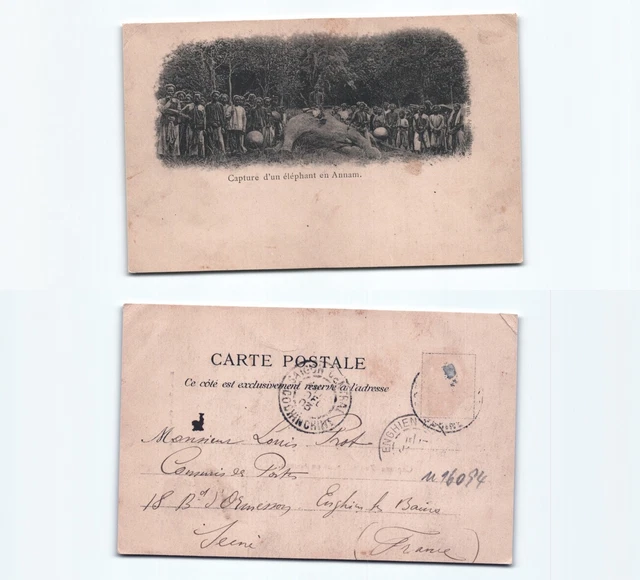 Capture d'un éléphant en Annam.
CARTE POSTALE
Ce côté est exclusivement réservé à l'adresse
SAIGON CENTRAL
COCHINCHINE
ENGHIEN
Monsieur Louis Prot
de Postes
18 Bd d'Ormesson Enghien les Bains
Seine
(France)